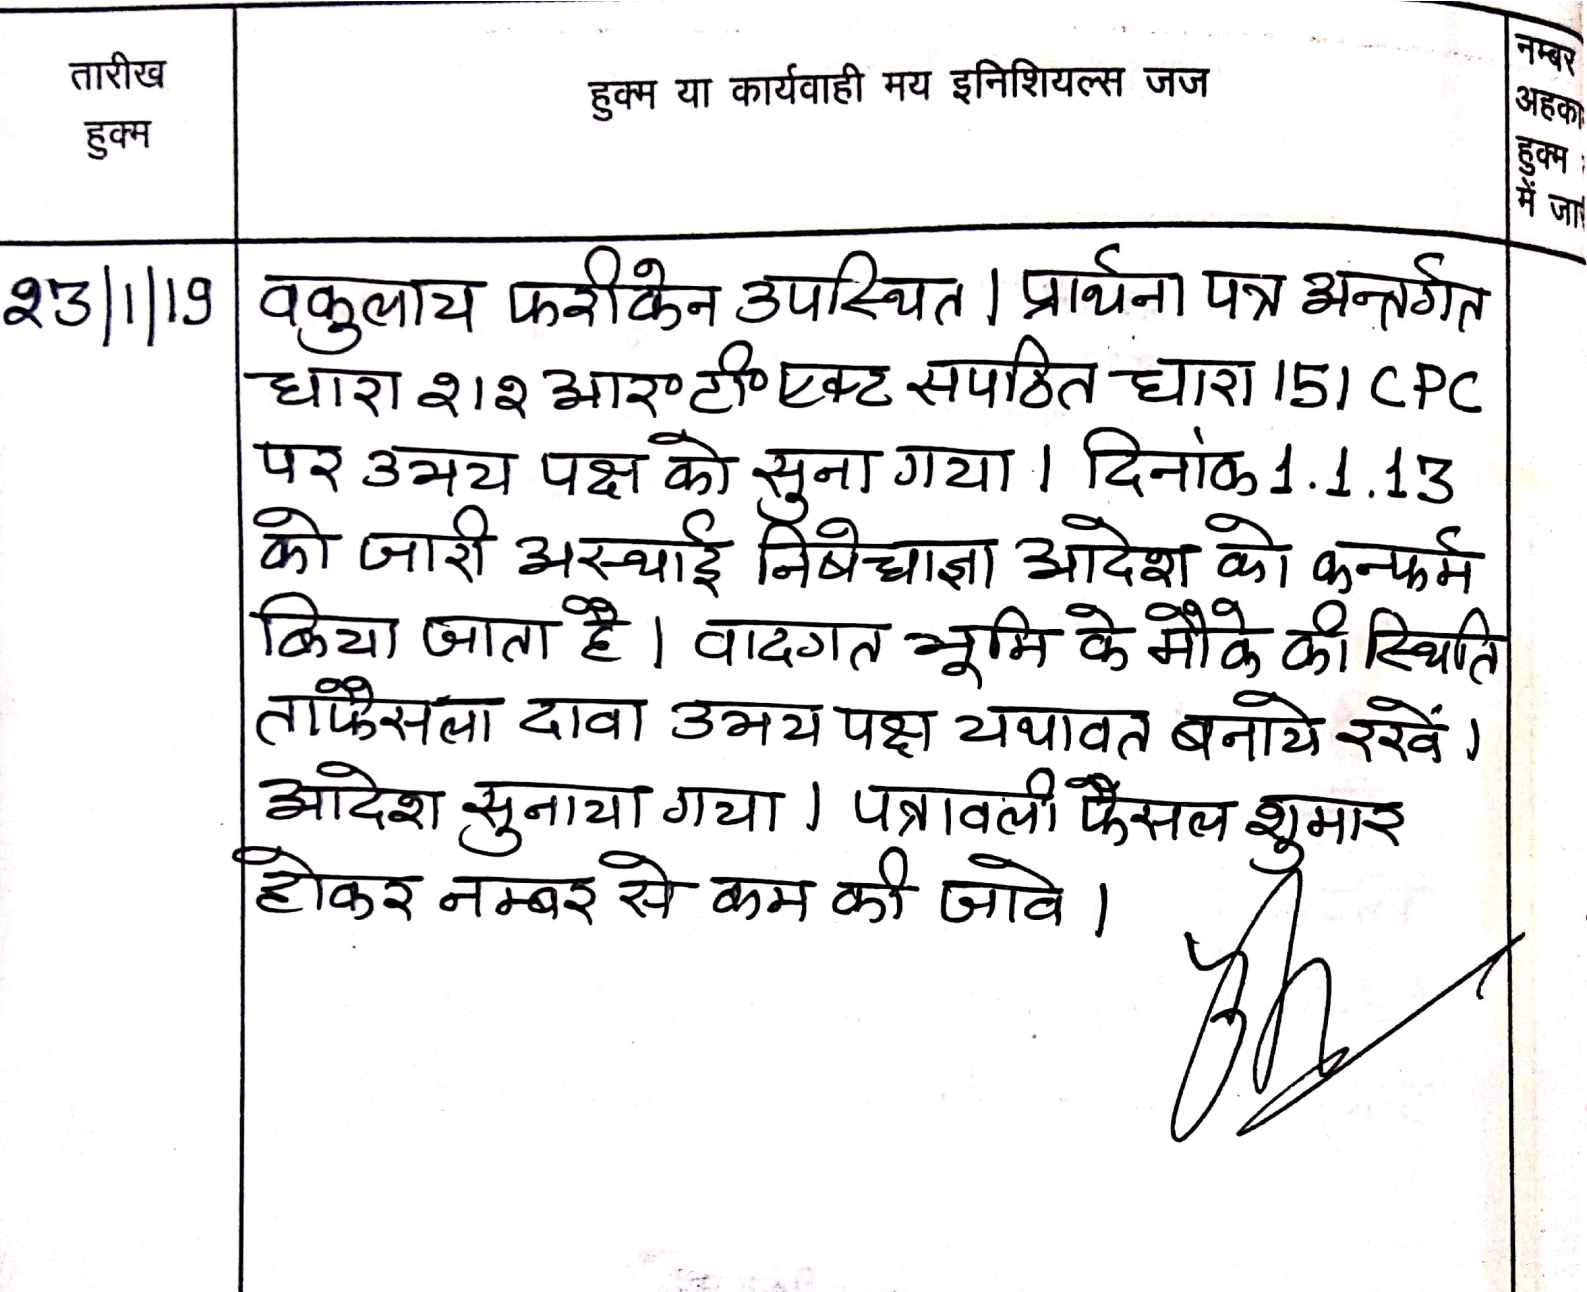 तारीख
हुक्म
हुक्म या कार्यवाही मय इनिशियल्स जज
नम्बर
अहका
हुक्म
में जा
23/1/19
वकुलाय फरीकेन उपस्थित। प्रार्थना पत्र अन्तर्गत
धारा २१२ आर॰ टी॰ एक्ट सपठित धारा 151 CPC
पर उभय पक्ष को सुना गया। दिनांक 1.1.13
को जारी अस्थाई निषेधाज्ञा आदेश को कन्फर्म
किया जाता है। वादगत भूमि के मौके की स्थिति
ताफैसला दावा उभय पक्ष यथावत बनाये रखें।
आदेश सुनाया गया। पत्रावली फैसल शुमार
होकर नम्बर से कम की जावे।